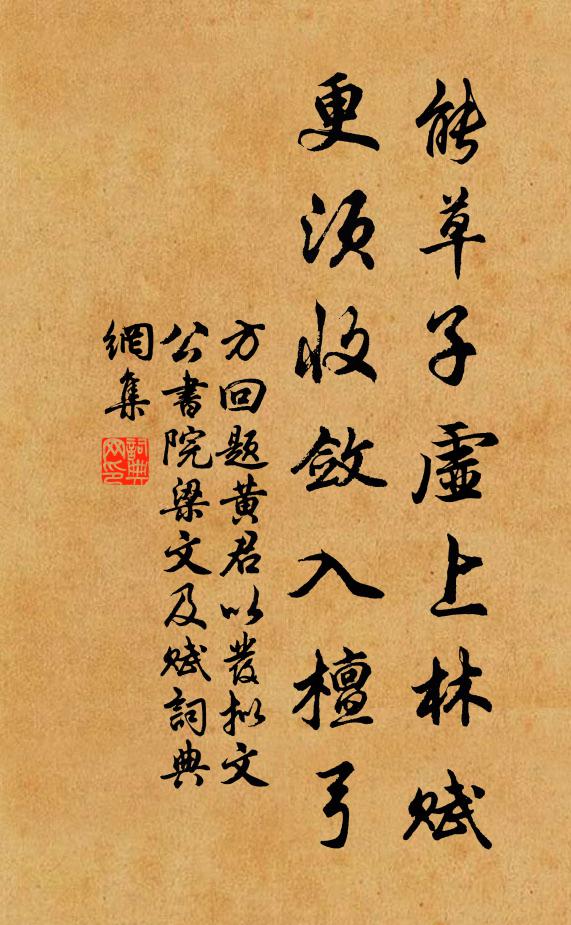 能草子虛上林賦
更須收斂入檀弓
方回題黃君以發拟文
公書院梁文及賦詞典
網集
詞典
网印